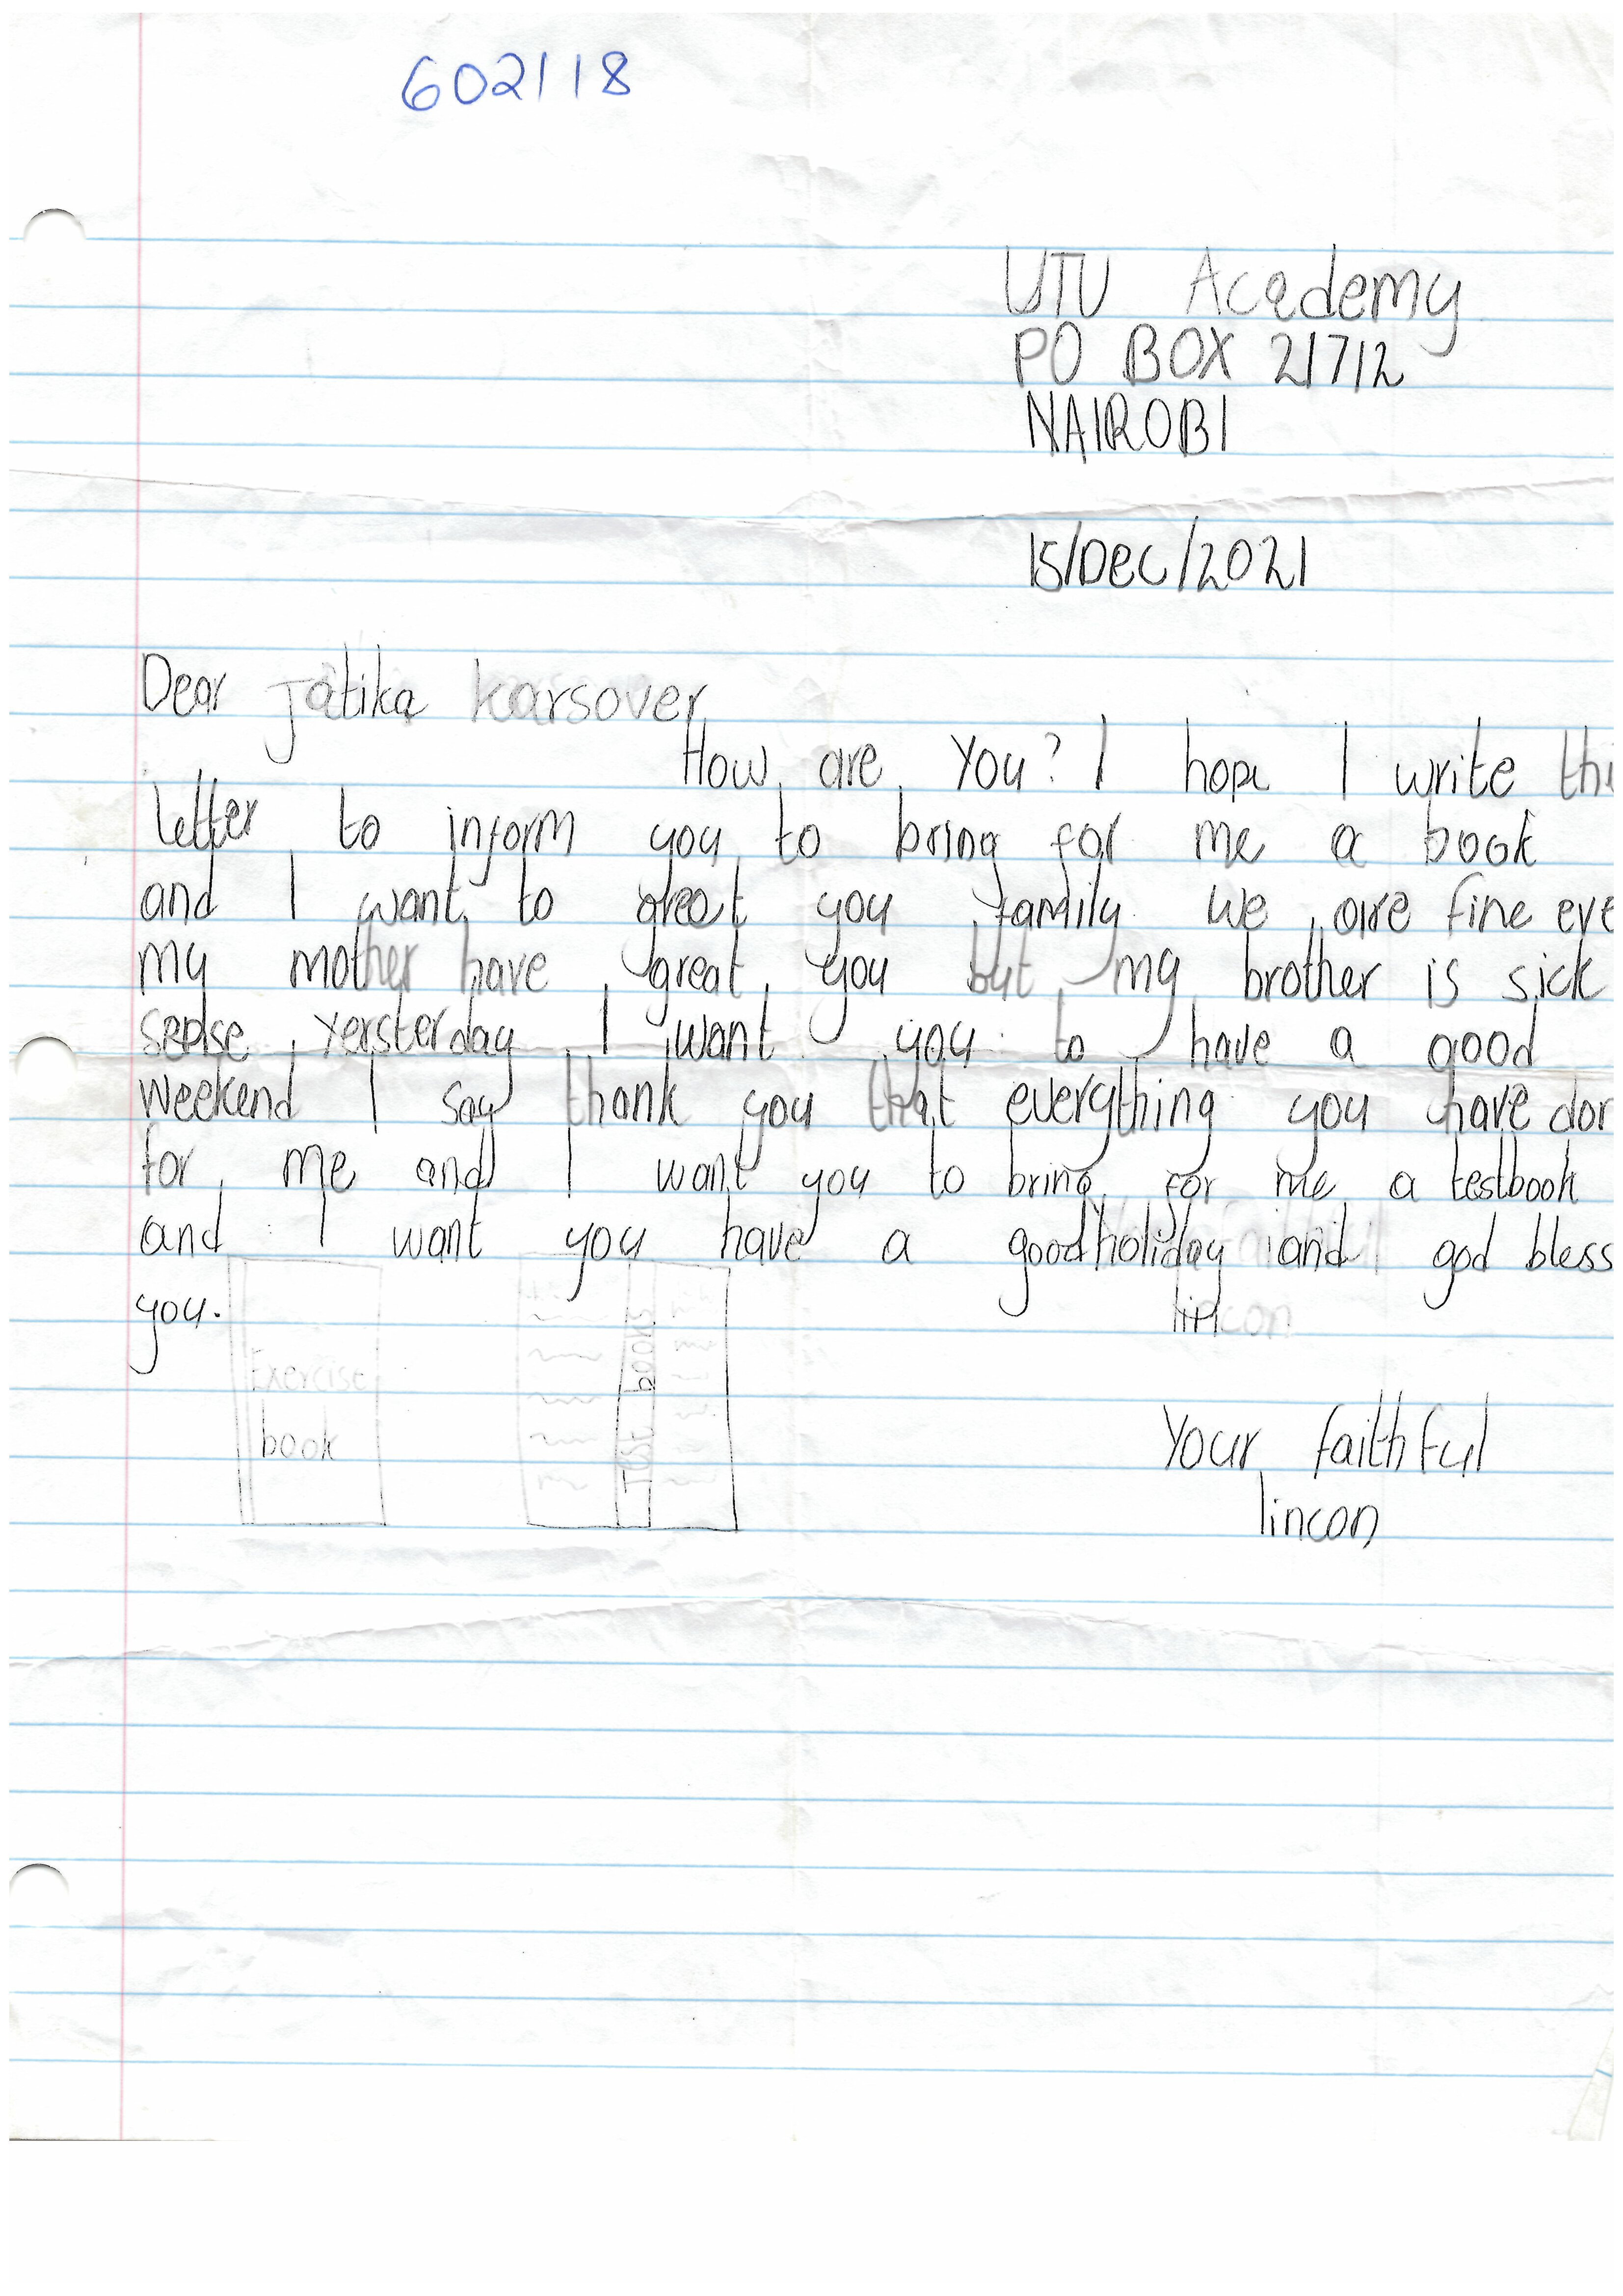 602118
UTU Academy
PO BOX 21712
NAIROBI
15/Dec/2021
Dear Jatika karsover
How are You? I hope I write thi
letter to inform you to bring for me a book
and I want to great you family we are fine eve
my mother have great you but my brother is sick
sense yersterday I want you to have a good
weekend I say thank you that everything you have don
for me and I want you to bring for me a testbook
and I want you have a good holiday and god bless
you.
lincon
Exercise
book
books
Your faithful
lincon